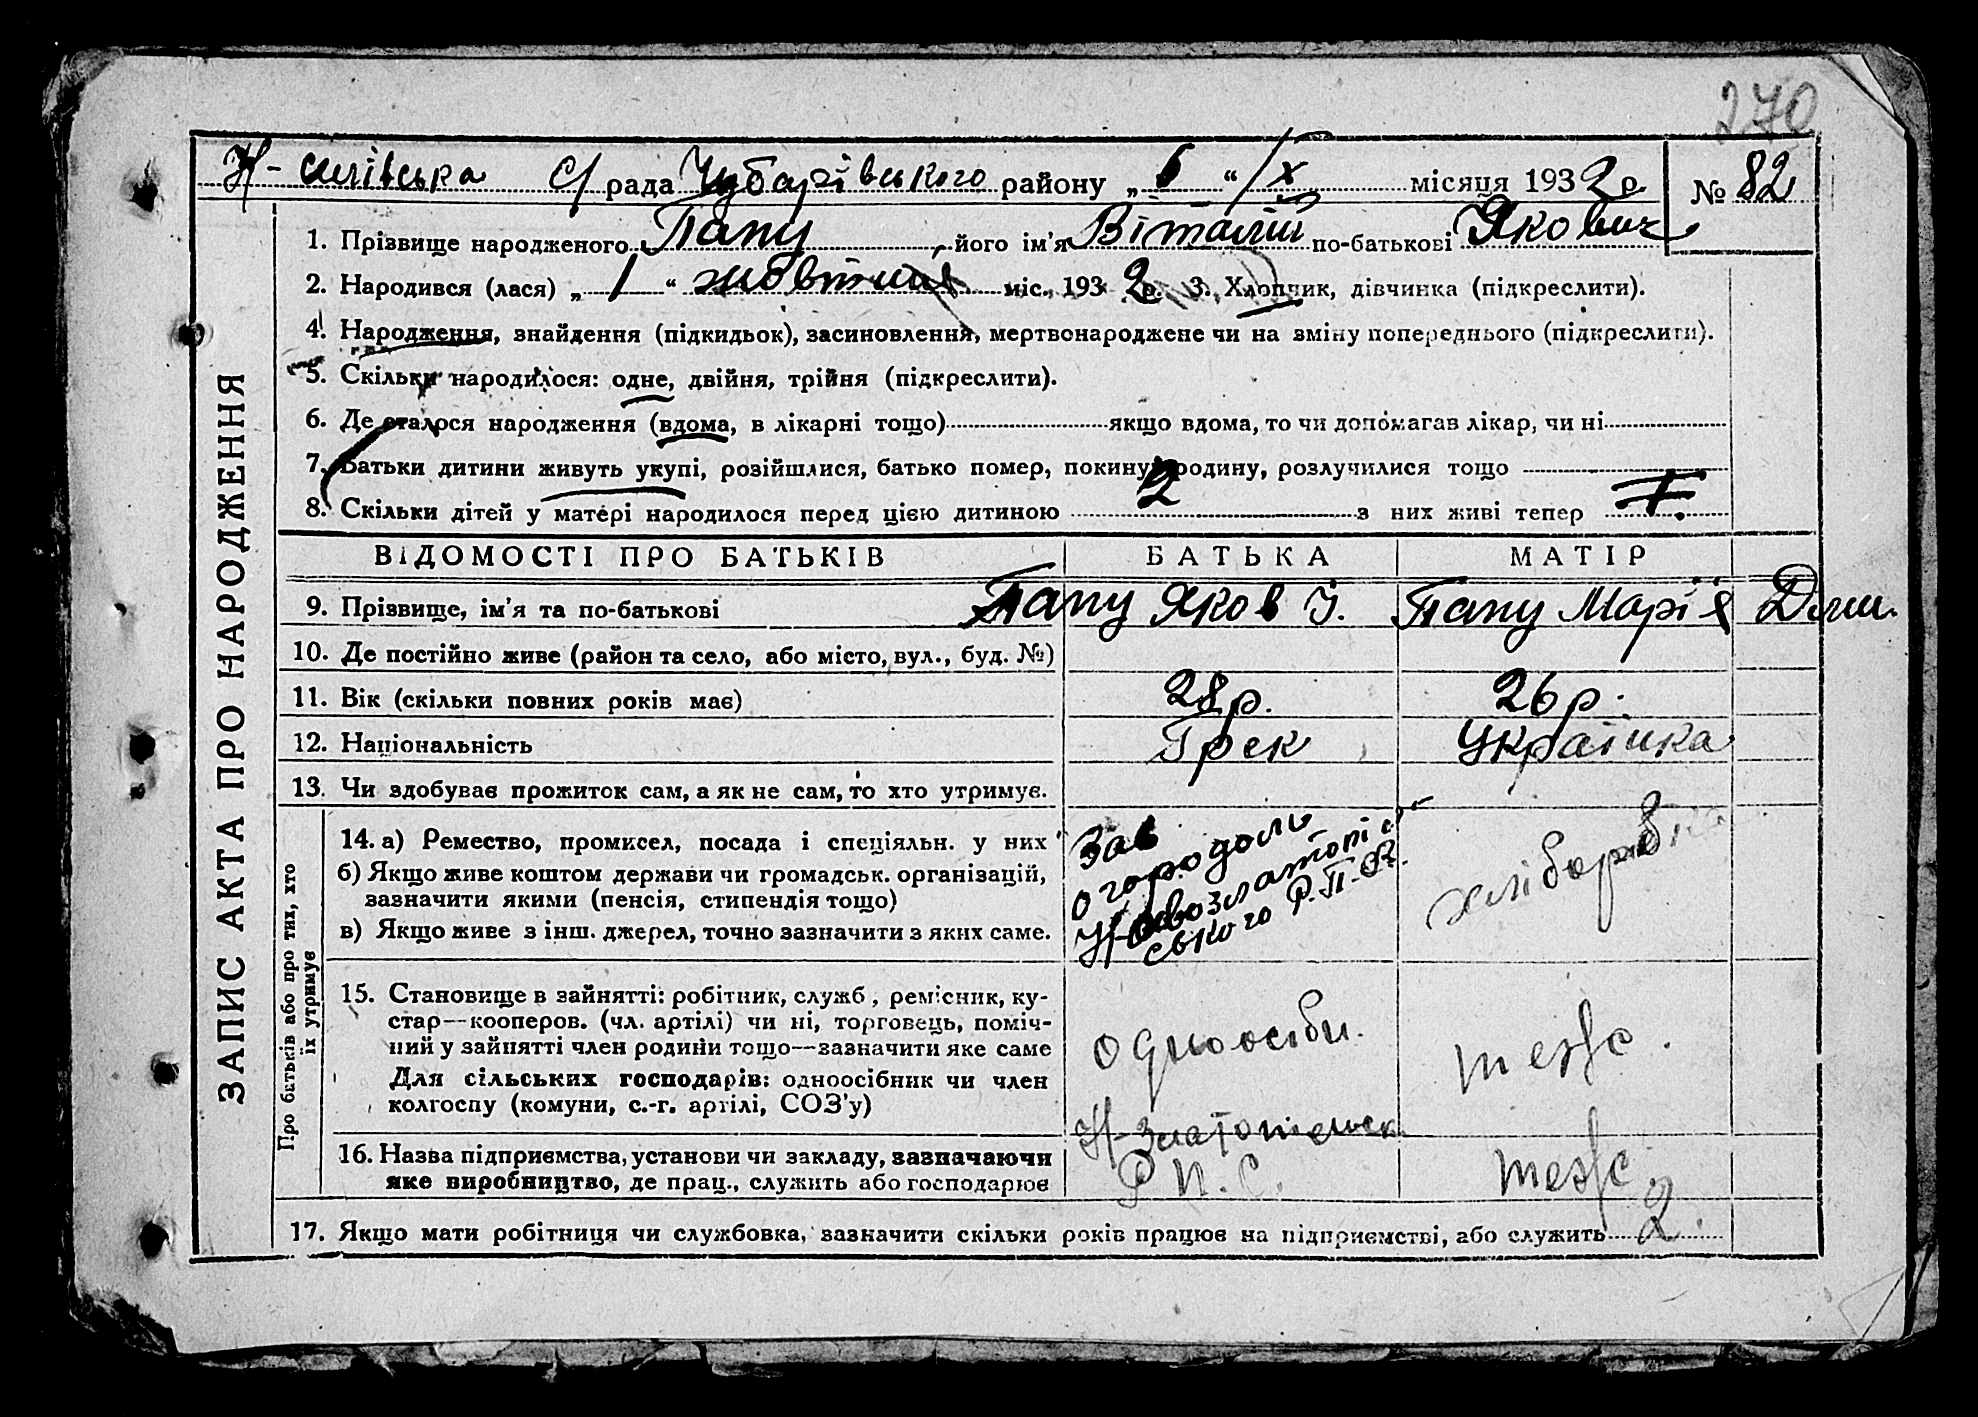 270
с/рада Чубарівського району „ 6 “ / X місяця 1932 р. № 82
ЗАПИС АКТА ПРО НАРОДЖЕННЯ
1. Прізвище народженого Папу, його ім'я Віталій по-батькові Якович
2. Народився (лася) „ 1 “ жовтня міс. 1932 р. 3. Хлопчик, дівчинка (підкреслити).
4. Народження, знайдення (підкидьок), засиновлення, мертвонароджене чи на зміну попереднього (підкреслити).
5. Скільки народилося: одне, двійня, трійня (підкреслити).
6. Де сталося народження (вдома, в лікарні тощо) якщо вдома, то чи допомагав лікар, чи ні
7. Батьки дитини живуть укупі, розійшлися, батько помер, покинув родину, розлучилися тощо
8. Скільки дітей у матері народилося перед цією дитиною 2 з них живі тепер
ВІДОМОСТІ ПРО БАТЬКІВ БАТЬКА МАТІР
9. Прізвище, ім'я та по-батькові Папу Яков І. Папу Марія Дми.
10. Де постійно живе (район та село, або місто, вул., буд. №)
11. Вік (скільки повних років має) 28 р. 26 р.
12. Національність Грек Українка
13. Чи здобуває прожиток сам, а як не сам, то хто утримує.
Про батьків або про тих, хто
їх утримує
14. а) Ремество, промисел, посада і спеціяльн. у них
б) Якщо живе коштом держави чи громадськ. організацій,
зазначити якими (пенсія, стипендія тощо)
в) Якщо живе з інш. джерел, точно зазначити з яких саме.
Зав
огородом
ського Р.П.
хліборобка
15. Становище в зайнятті: робітник, служб., ремісник, ку-
стар—кооперов. (чл. артілі) чи ні, торговець, поміч-
ний у зайнятті член родини тощо—зазначити яке саме
Для сільських господарів: одноосібник чи член
колгоспу (комуни, с.-г. артілі, СОЗ'у)
одноосібн. теж с.
16. Назва підприємства, установи чи закладу, зазначаючи
яке виробництво, де прац., служить або господарює
Р П. С. теж с.
17. Якщо мати робітниця чи службовка, зазначити скільки років працює на підприємстві, або служить 2.